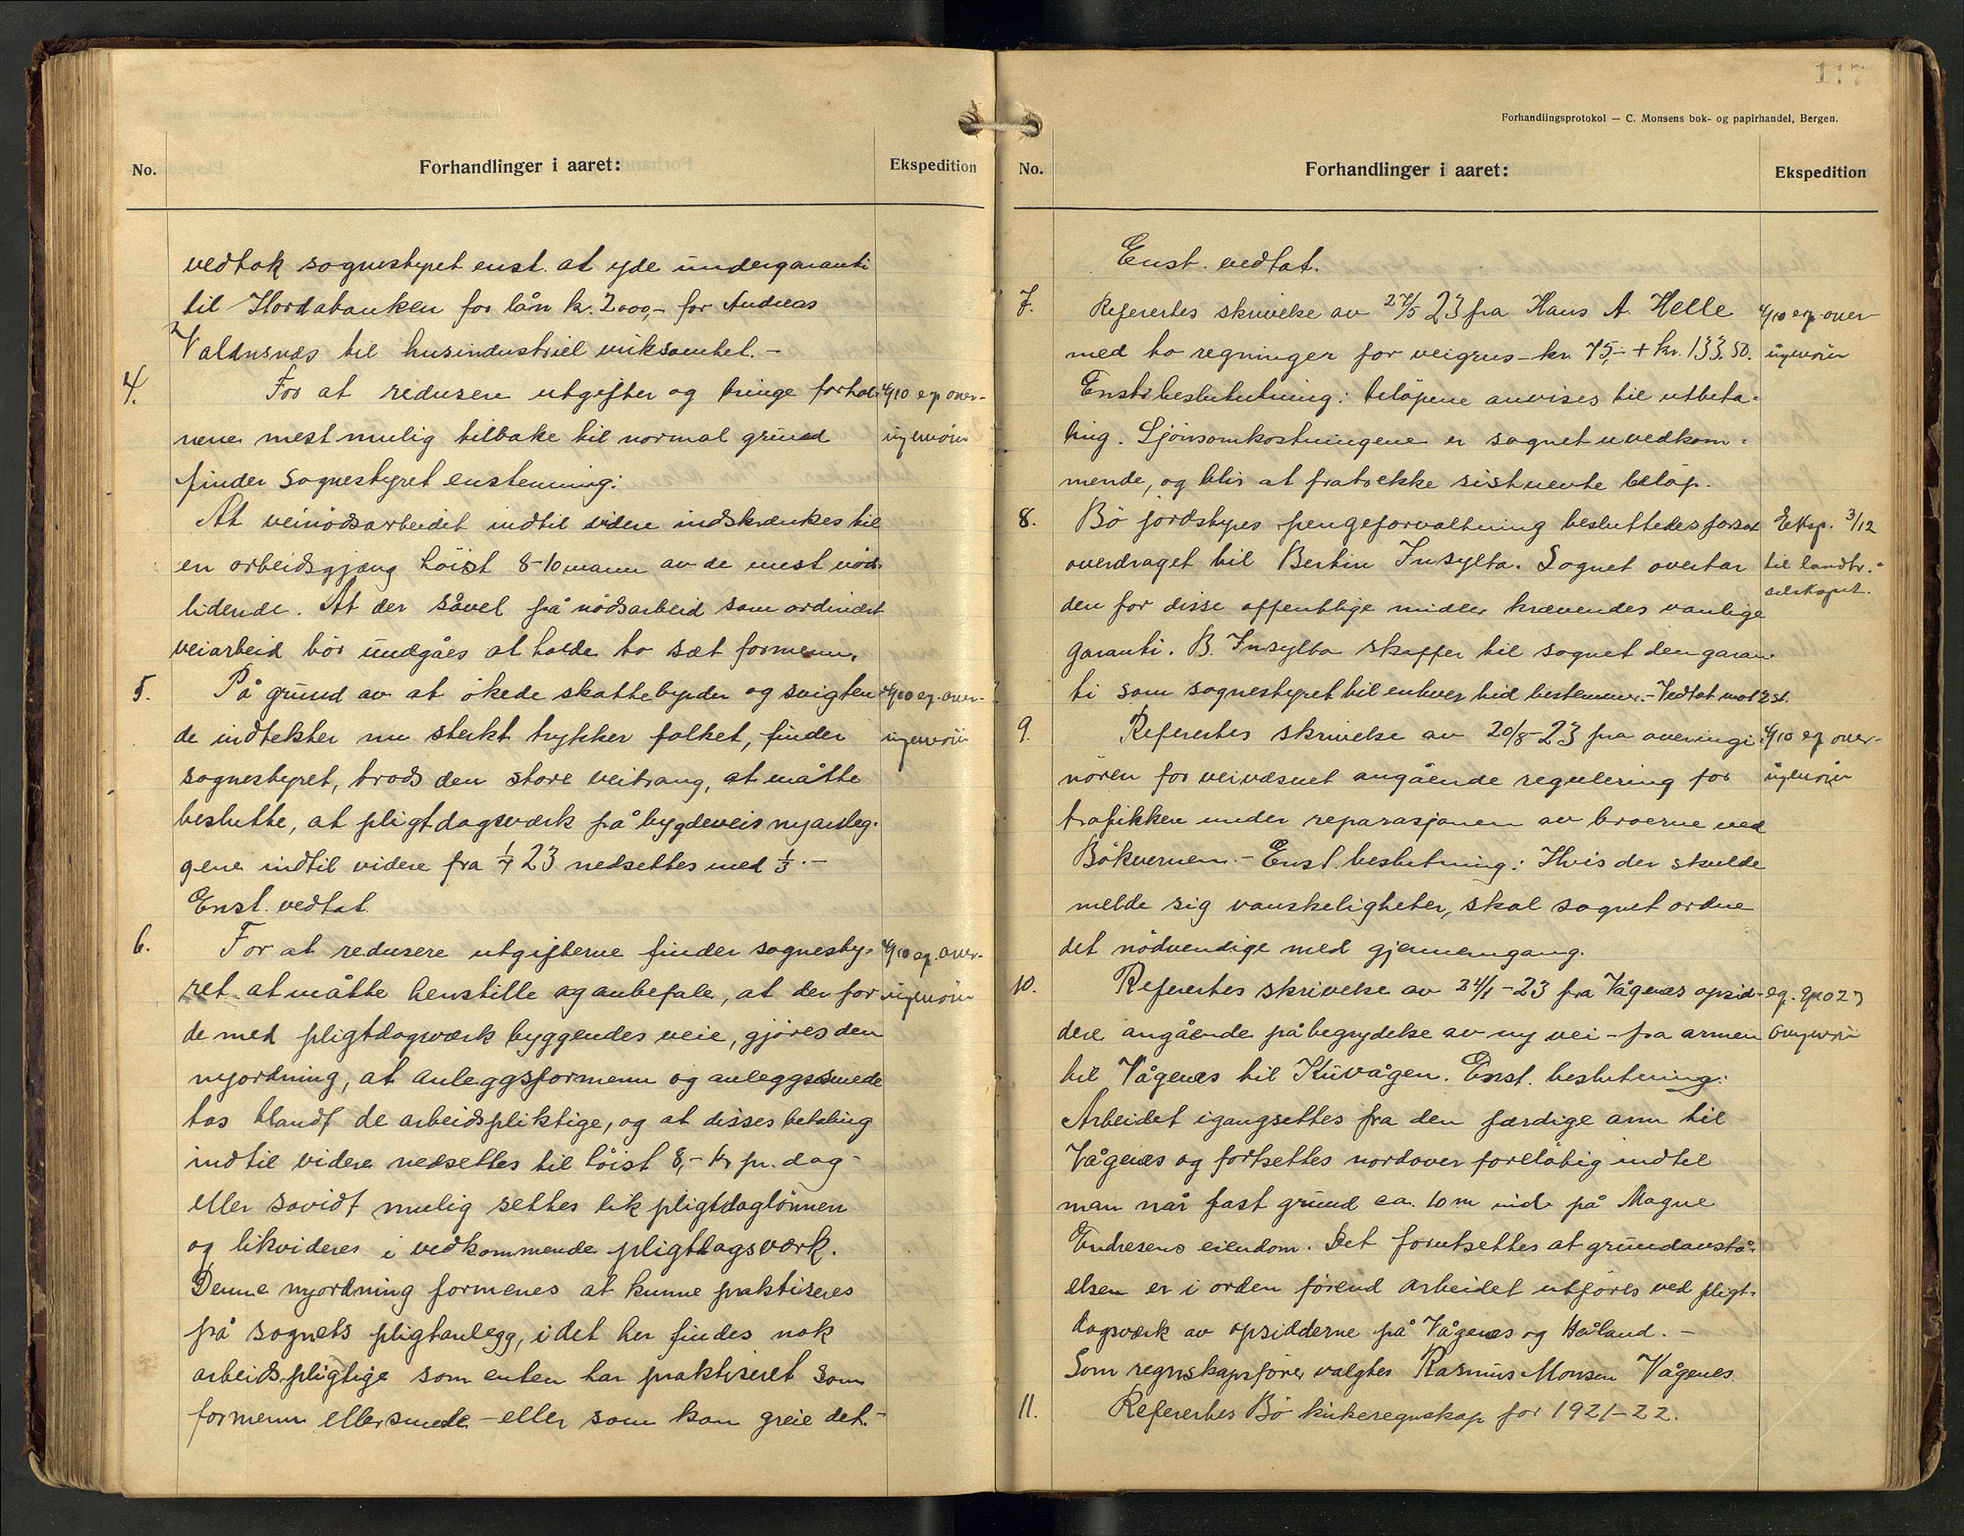 No.
Forhandlinger i aaret:
Ekspedition
vedtok sognestyret enst. at yde undergaranti
til Hordabanken for lån kr. 2000,- for Andreas
Valdnsnæs til husindustriel virksomhet. -
4. For at redusere utgifter og bringe forhol- 4/10 ep over-
nene mest mulig tilbake til normal grund ingeniör
finder sognestyret enstemmig:
At veinödsarbeidet indtil videre indskrænkes til
en arbeidsgjæng höist 8-10 mann av de mest nöd-
lidende. At der såvel på nödsarbeid som ordinært
veiarbeid bör undgåes at holde to sæt formenn.
5. På grund av at ökede skattebyrder og svigten- 4/10 ep. over-
de indtekter nu sterkt trykker folket, finder ingeniör
sognestyret, trods den store veitrang, at måtte
beslutte, at pligtdagsværk på bygdeveis nyanleg-
gene indtil videre fra 1/7 23 nedsettes med 1/3. -
Enst. vedtat.
6. For at redusere utgifterne finder sognesty- 4/10 ep. over-
ret at måtte henstille og anbefale, at der for ingeniör
de med pligtdagsværk byggendes veie, gjöres den
nyordning, at anleggsformenn og anleggssmede
tas blandt de arbeidspliktige, og at disses betaling
indtil videre nedsettes til höist 8,- kr pr. dag -
eller såvidt mulig settes lik pligtdaglönnen
og likvideres i vedkommende pligtdagsværk.
Denne nyordning formenes at kunne praktiseres
på sognets pligtanlegg, idet her findes nok
arbeidspligtige som enten har praktiseret som
formenn eller smede - eller som kan greie det. -
117
Forhandlingsprotokol — C. Monsens bok- og papirhandel, Bergen.
No.
Forhandlinger i aaret:
Ekspedition
Enst. vedtat.
7. Refertes skrivelse av 27/5 23 fra Hans A. Helle 4/10 ep over-
med to regninger for veigrus - kr. 75,- + kr. 133.50. ingeniör
Enst. beslutning: belöpene anvises til utbeta-
ling. Sjönsomkostningene er sognet uvedkom-
mende, og blir at fratrekke sistnevte belöp.
8. Bö jordstyres pengeforvaltning besluttedes forsat Eksp. 3/12
overdraget til Bertin Insylta. Sognet overtar til landbr.
den for disse offentlige midler krævendes vanlige selskapet.
garanti. B. Insylta skaffer til sognet den garan-
ti som sognestyret til enhver tid bestemmer. - Vedtat mot 2 st.
9. Refertes skrivelse av 20/8-23 fra overingi- 4/10 ep over-
nören for veivæsnet angående regulering for ingeniör
trafikken under reparasjonen av broerne ved
Bökvernen. - Enst. beslutning: Hvis der skulde
melde sig vanskeligheter, skal sognet ordne
det nödvendige med gjennemgang.
10. Refertes skrivelse av 24/1-23 fra Vågenes opsid-
dere angående påbegydelse av ny vei - fra armen
til Vågenes til Kuvågen. Enst. beslutning:
Arbeidet igangsettes fra den færdige arm til
Vågenes og fortsettes nordover forelöbig indtil
man når fast grund ca. 10 m ind på Magne
Endresens eiendom. Det forutsettes at grundavstå-
elsen er i orden förend arbeidet utföres ved pligt-
dagsværk av opsidderne på Vågenes og Håland. -
Som regnskapsförer valgtes Rasmus Monsen Vågenes.
11. Refertes Bö kirkeregnskap for 1921-22.